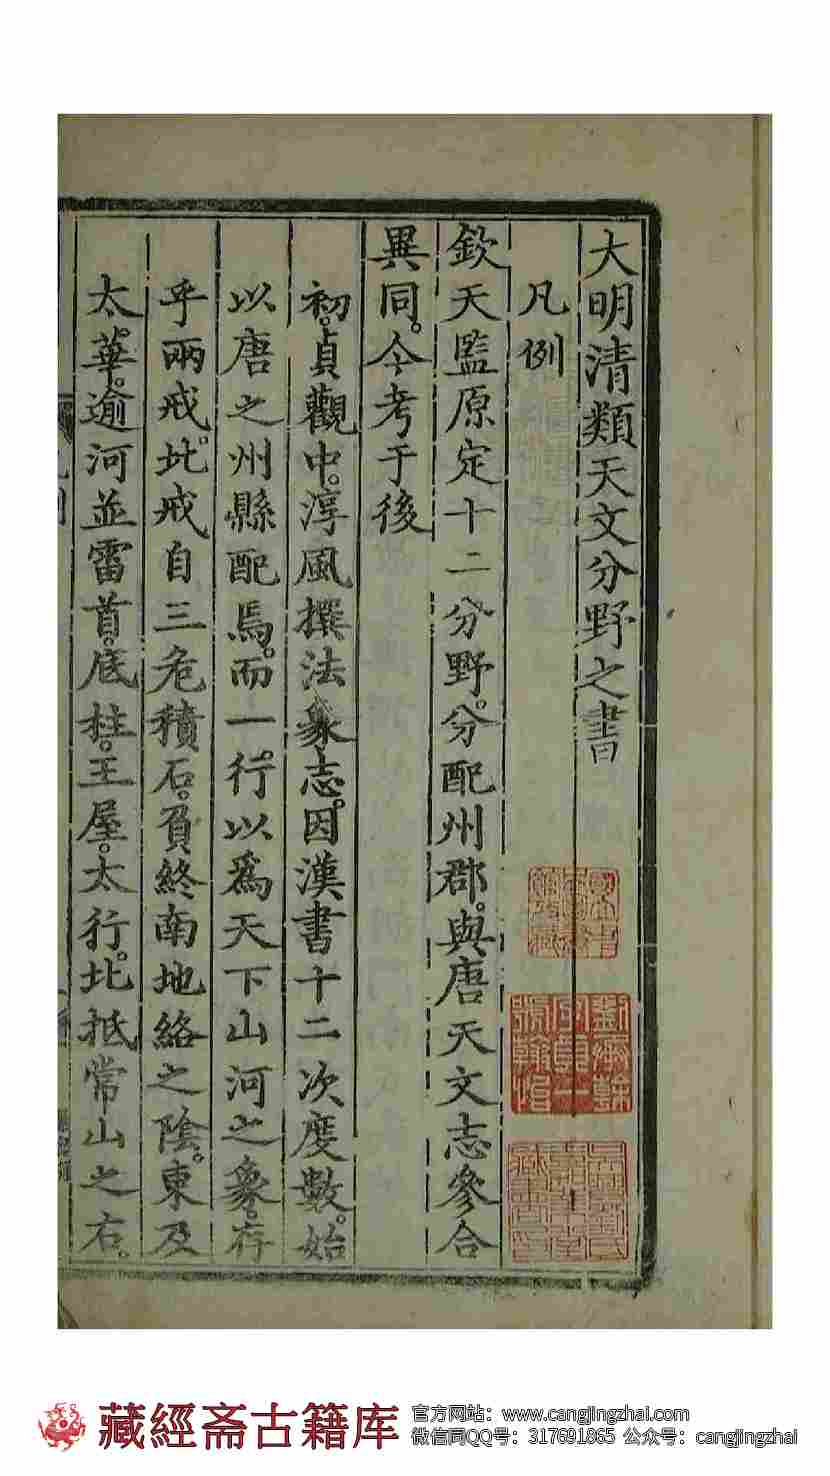 大明清類天文分野之書
凡例
欽天監原定十二分野。分配州郡。與唐天文志參合
異同。今考于後
初。貞觀中。淳風撰法象志。因漢書十二次度數。始
以唐之州縣配焉。而一行以爲天下山河之象。存
乎兩戒。北戒自三危積石。負終南地絡之陰。東及
太華。逾河並雷首。底柱。王屋。太行。北抵常山之右。
藏經斋古籍库
官方网站：www.cangjingzhai.com
微信同QQ号：317691865 公众号：cangjingzhai